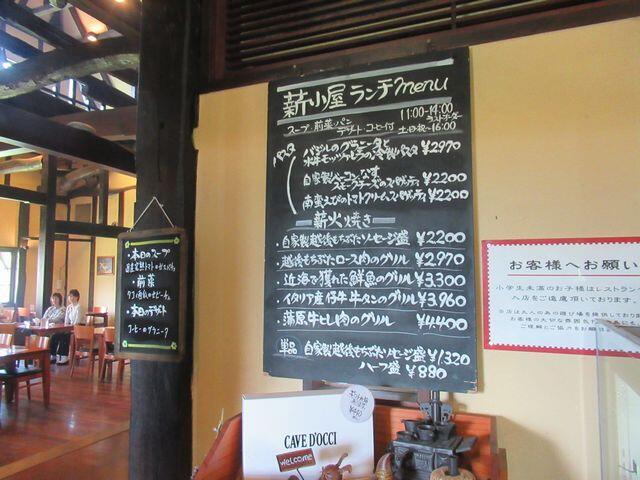 薪小屋 ランチmenu
スープ・前菜・パン
デザート・コーヒー付
11:00-14:00
ラストオーダー
土日祝〜16:00
パスタ
バジルのグラニータと
水牛モッツァレラの冷製パスタ ¥2970
自家製ベーコン、なす
スモークチーズのスパゲッティ ¥2200
南蛮えびのトマトクリームスパゲッティ ¥2200
薪火焼き
・自家製越後もちぶたソーセージ盛 ¥2200
・越後もちぶたロース肉のグリル ¥2.970
・近海で獲れた鮮魚のグリル ¥3,300
・イタリア産仔牛 牛タンのグリル ¥3,960
・蒲原牛ヒレ肉のグリル ¥4,400
単品 自家製越後もちぶたソーセージ盛 ¥1,320
ハーフ盛 ¥880
・本日のスープ
・前菜
・本日のデザート
コーヒーのグラニータ
お客様へお願い
小学生未満のお子様はレストラン
入店をご遠慮頂いております。
お客様の大切な雰囲気
ご理解とご協力をお願い
CAVE D'OCCI
welcome